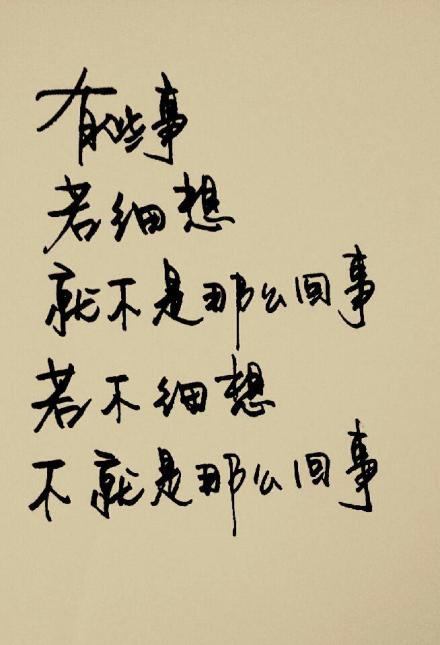 有些事
若细想
就不是那么回事
若不细想
不就是那么回事